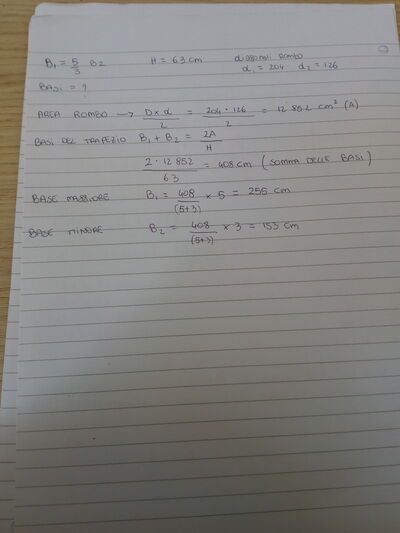 B₁ = 5/3 B2 H = 63 cm diagonali rombo
d₁ = 204 d₂ = 126
BASI = ?
AREA ROMBO → D × d / 2 = 204 · 126 / 2 = 12 852 cm² (A)
BASI DEL TRAPEZIO B₁ + B₂ = 2A / H
2 · 12 852 / 63 = 408 cm (SOMMA DELLE BASI)
BASE MAGGIORE B₁ = 408 / (5+3) × 5 = 255 cm
BASE MINORE B₂ = 408 / (5+3) × 3 = 153 cm